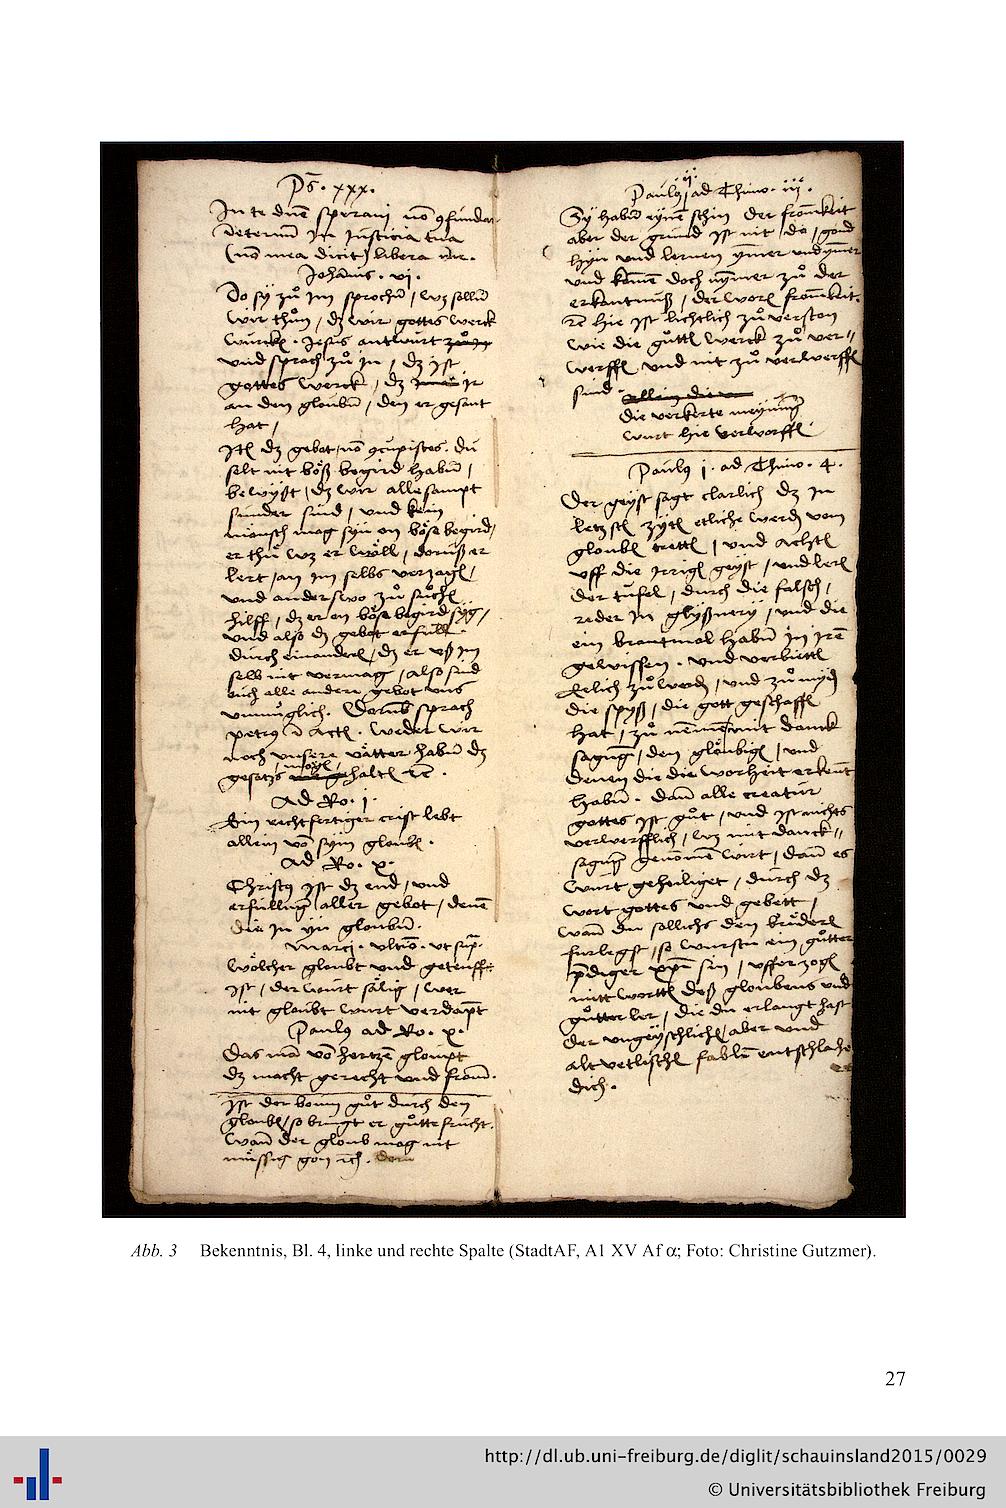 Ps. xxx.
In te dne speravi no 9fundar
In eternum In Iusticia tua
(no mea dicit) libera me.
Johannis . vi .
Do sy zů im sprochen / wz sollen
wir thůn / dz wir gottes werck
würcken . Jesus antwurt
und sprach zů in / dz ist
gottes werck / dz ir
an den glouben / den er gesant
hat /
Itē dz gebot / no 9cupisces . du
solt nit böß begird haben /
bewyßt / dz wir alle sampt
sünder sind / und kein
mönsch mag syn on böse begird /
er thů wz er wöll / doruß er
lert / an im selbs verzagen /
und anderswo zů sůchen
hilff / dz er on böse begird syg /
und also dz gebot erfüll
durch ein anderen / dz er uß im
selb nit vermag / also sind
ouch alle andere gebot uns
unmuglich . Dorumb sprach
petrus in Acten . Weder wir
noch unsere vätter haben dz
mögen
gesatzs halten rc .
Ad Ro . i .
Ein rechtfertiger crist lebt
allein von sym glouben .
Ad Ro . x .
Christus ist dz end / und
erfüllung aller gebot / denen
die In yn glouben .
Marci . ultio . ut sup .
Wölcher gloubt und getoufft
ist / der würt sälig / wer
nit gloubt wurt verdampt
Paulus ad Ro . x .
Das man von hertzen gloupt
dz macht gerecht und fromm .
Ist der boum gůt durch den
glouben / so bringt er gůtte frücht .
Wann der gloub mag nit
müssig gon rc .
ij .
Paulus ad Thimo . iii .
Sy haben eynen schin der fromkeit
aber der grund ist nit do / gond
hyn und lernen ymer und ymer
und kamen doch nymer zů der
erkantnuß / der woren fromkeit .
rc hie ist lichtlich zů verston
wie die gůtten werck zů ver=
werffen und nit zů verwerffen
sind .
allein die
die verkerte meynung
wurt hie verworffen
Paulus i . ad Thimo . 4 .
Der geyst sagt clarlich dz in
letzsten zyten etliche werden vom
glouben tretten / und achten
uff die irrigen geyst / und leren
der tüfel / durch die falsch /
reder in glyßnery / und die
ein brantmal haben in iren
gewissen . und verbietten
Eelich zů werden / und zů myden
die spyß / die gott geschaffen
hat / zů nemen mit danck
sagung / den gloubigen / und
denen die die worheit erkent
haben . Dann alle creatur
gottes ist gůt / und ist nichts
verwerfflich / wz mit danck=
sagung genomen wirt / dann es
würt geheiliget / durch dz
wort gottes und gebett /
wann du sollichs den brůderen
furlegst / so würstu ein gůtter
prediger xpi sin / ufferzogen
mitt worten deß gloubens und
gůtter ler / die du erlangt hast
der ungeyschlichen / aber und
altvetlischen fablen entschlahe
dich .
Abb. 3 Bekenntnis, Bl. 4, linke und rechte Spalte (StadtAF, A1 XV Af α; Foto: Christine Gutzmer).
27
http://dl.ub.uni-freiburg.de/diglit/schauinsland2015/0029
© Universitätsbibliothek Freiburg